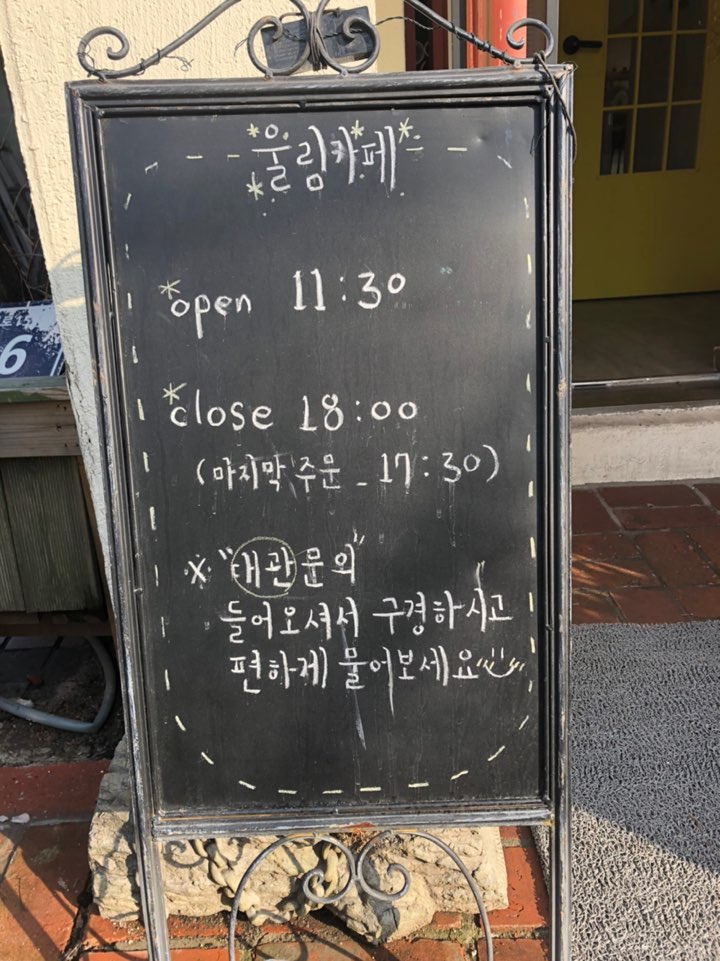 울림카페
*open 11:30
*close 18:00
(마지막 주문 - 17:30)
x "대관문의"
들어오셔서 구경하시고
편하게 물어보세요
6